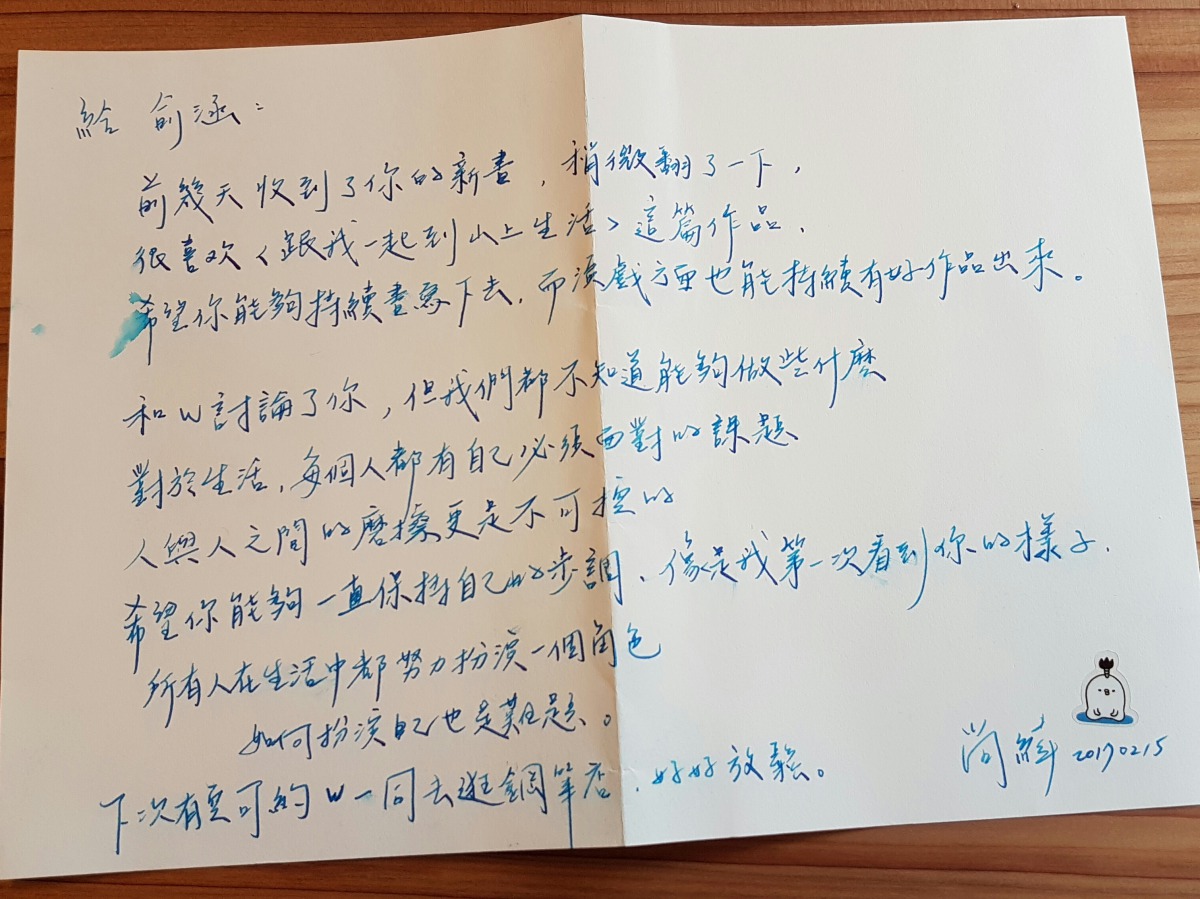 給 俞涵：
前幾天收到了你的新書，稍微翻了一下，
很喜欢〈跟我一起到山上生活〉這篇作品，
希望你能夠持續書寫下去，而演戲方面也能持續有好作品出來。
和W討論了你，但我們都不知道能夠做些什麼
對於生活，每個人都有自己必須面對的課題
人與人之間的磨擦更是不可控的
希望你能夠一直保持自己的步調，像是我第一次看到你的樣子，
所有人在生活中都努力扮演一個角色
如何扮演自己也是難題。
下次有空可約W一同去逛鋼筆店，好好放鬆。
尚緯 20170215